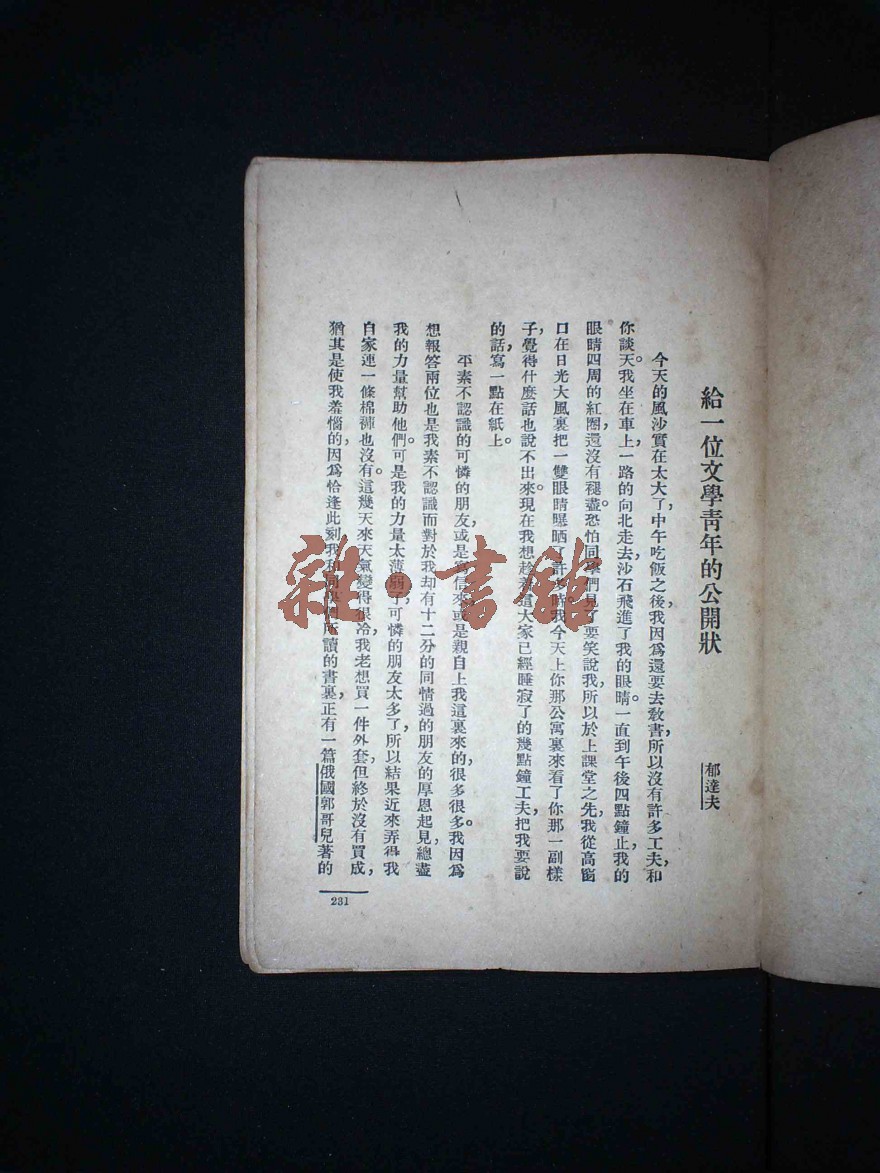 給一位文學青年的公開狀
郁達夫
今天的風沙實在太大了，中午吃飯之後，我因爲還要去教書，所以沒有許多工夫，和
你談天。我坐在車上，一路的向北走去，沙石飛進了我的眼睛。一直到午後四點鐘止，我的
眼睛四周的紅圈，還沒有褪盡。恐怕同學們見了要笑說我，所以於上課堂之先，我從高窗
口在日光大風裏把一雙眼睛曝晒了許多時。我今天上你那公寓裏來看了你那一副樣
子，覺得什麼話也說不出來。現在我想趁着這大家已經睡寂了的幾點鐘工夫，把我要說
的話，寫一點在紙上。
平素不認識的可憐的朋友，或是寫信來，或是親自上我這裏來的，很多很多。我因爲
想報答兩位也是我素不認識而對於我却有十二分的同情過的朋友的厚恩起見，總盡
我的力量幫助他們。可是我的力量太薄弱了，可憐的朋友太多了，所以結果近來弄得我
自家連一條棉褲也沒有。這幾天來天氣變得很冷，我老想買一件外套，但終於沒有買成，
猶其是使我羞惱的，因爲恰逢此刻，我和同學們所讀的書裏，正有一篇俄國郭哥兒著的
231
雜·書館